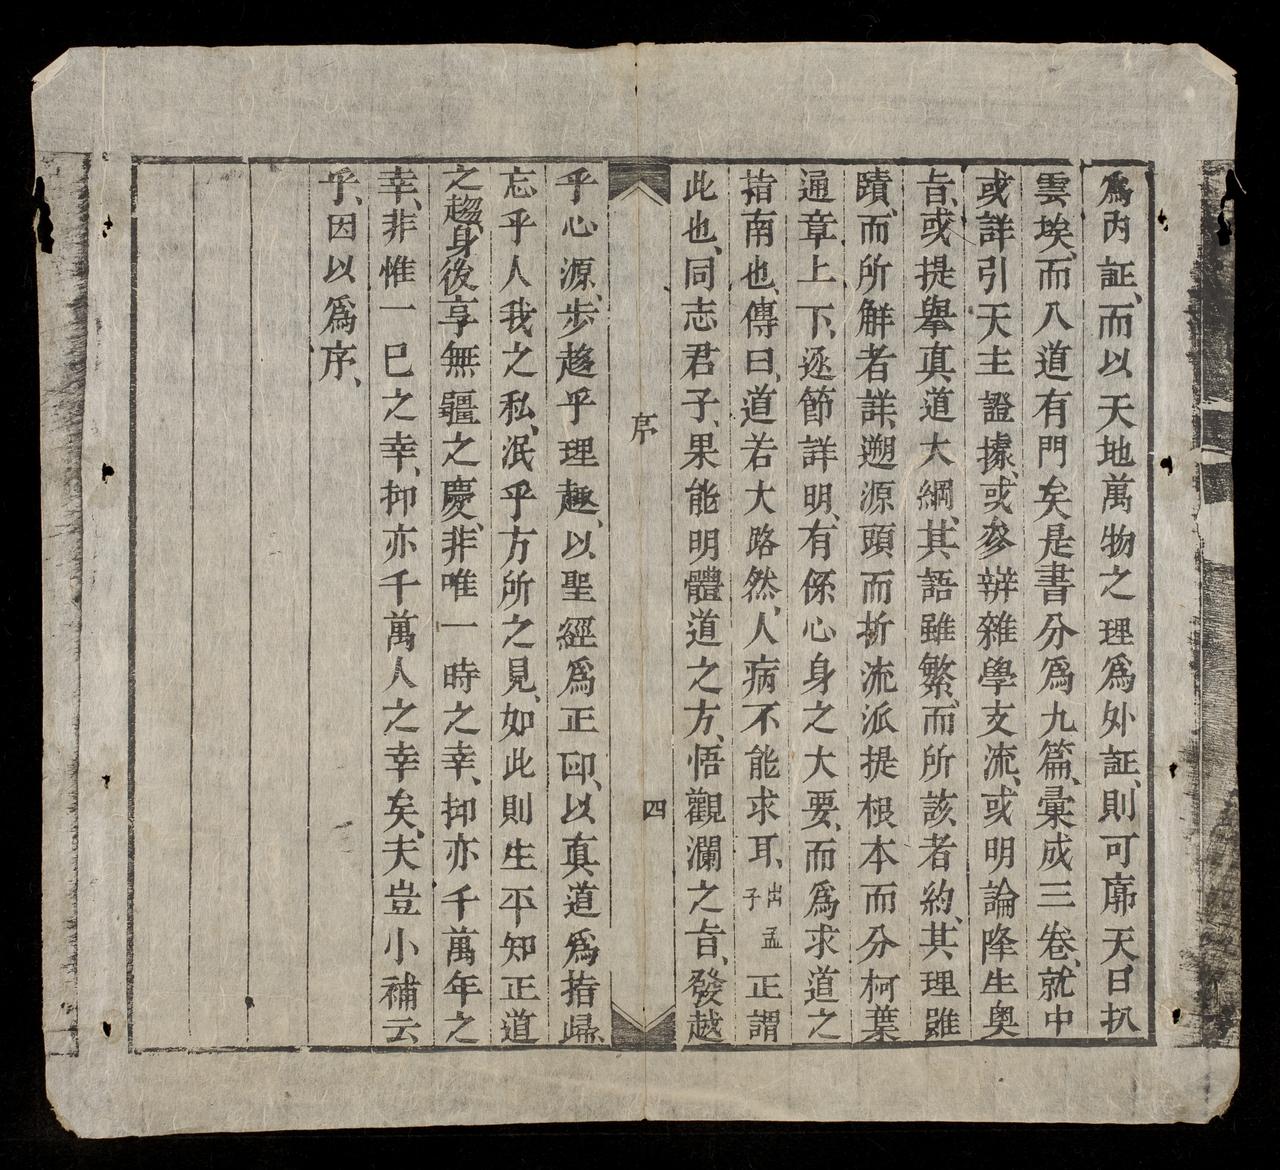 爲内証、而以天地萬物之理爲外証、則可廓天日扒
雲埃、而入道有門矣是書分爲九篇、彙成三卷、就中
或詳引天主證據、或參辨雜學支流、或明論降生奥
旨、或提舉真道大綱、其語雖繁、而所該者約、其理雖
賾、而所解者詳、遡源頭而折流派提根本而分柯葉
通章上下、逐節詳明、有係心身之大要、而爲求道之
指南也、傳曰、道若大路然、人病不能求耳、出孟子正謂
此也、同志君子、果能明體道之方、悟觀瀾之旨、發越
序
四
乎心源、步趨乎理趣、以聖經爲正印、以真道爲指歸、
忘乎人我之私、泯乎方所之見、如此則生平知正道
之趨、身後享無疆之慶、非唯一時之幸、抑亦千萬年之
幸、非惟一己之幸、抑亦千萬人之幸矣、夫豈小補云
乎、因以爲序、